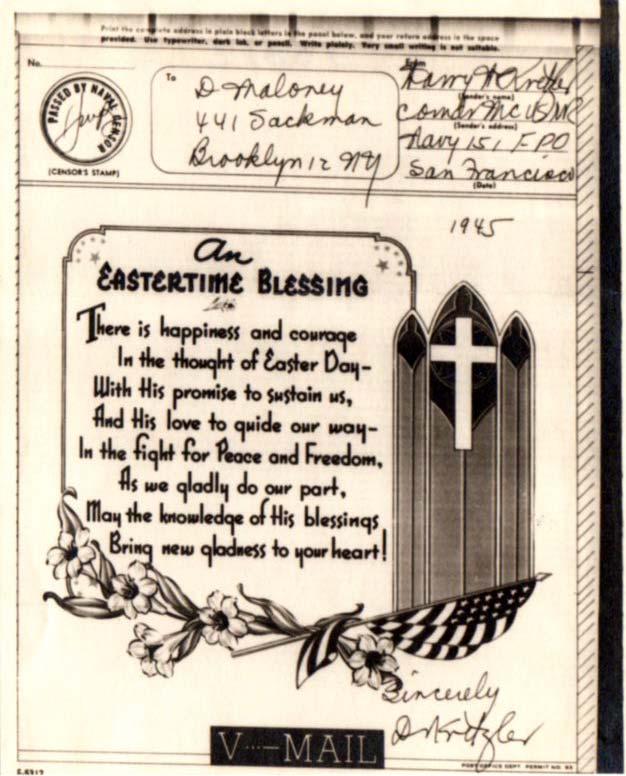 Print the complete address in plain block letters in the panel below, and your return address in the space
provided. Use typewriter, dark ink, or pencil. Write plainly. Very small writing is not suitable.
No.
PASSED BY NAVAL CENSOR
(CENSOR'S STAMP)
To
D Maloney
441 Sackman
Brooklyn 12 NY
From
Harry W Kritzler
(Sender's name)
Comdr MC USNR
(Sender's address)
Navy 151 FPO
San Francisco
(Date)
1945
An
EASTERTIME BLESSING
There is happiness and courage
In the thought of Easter Day—
With His promise to sustain us,
And His love to guide our way—
In the fight for Peace and Freedom,
As we gladly do our part,
May the knowledge of His blessings
Bring new gladness to your heart!
Sincerely
Dr Kritzler
V···—MAIL
POST OFFICE DEPT. PERMIT NO. 93